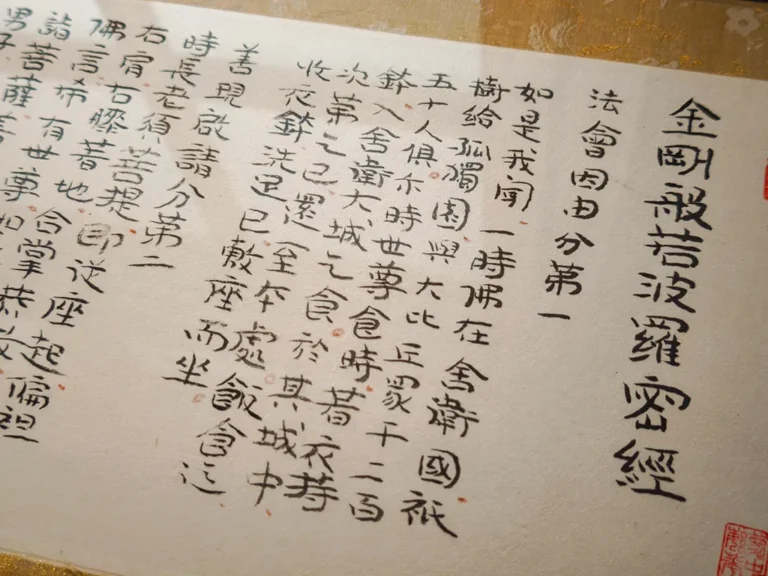 金剛般若波羅密經
法會因由分第一
如是我聞一時佛在舍衛國祇
樹給孤獨園與大比丘眾千二百
五十人俱尒時世尊食時著衣持
鉢入舍衛大城乞食於其城中
次第乞已還至本處飯食訖
收衣鉢洗足已敷座而坐
善現啟請分第二
時長老須菩提即從座起偏袒
右肩右膝著地合掌恭敬
佛言希有世尊如
諸菩薩善
男子